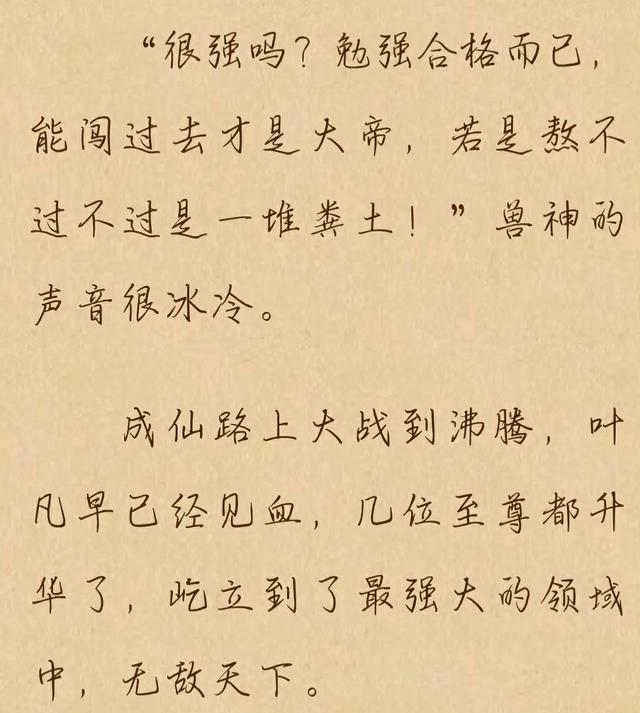 “很强吗？勉强合格而已，
能闯过去才是大帝，若是熬不
过不过是一堆粪土！”兽神的
声音很冰冷。
成仙路上大战到沸腾，叶
凡早已经见血，几位至尊都升
华了，屹立到了最强大的领域
中，无敌天下。